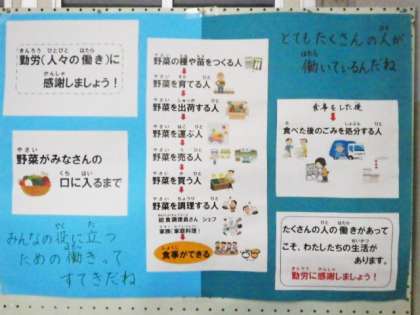 勤労(人々の働き)に
感謝しましょう!
野菜がみなさんの
口に入るまで
みんなの役に立つ
ための働きって
すてきだね
野菜の種や苗をつくる人
野菜を育てる人
野菜を出荷する人
野菜を運ぶ人
野菜を売る人
野菜を買う人
野菜を調理する人
給食調理員さん シェフ
家族(家庭料理)
食事ができる
とてもたくさんの人が
働いているんだね
食事をした後
食べた後のごみを処分する人
たくさんの人の働きがあって
こそ、わたしたちの生活が
あります。
勤労に感謝しましょう!